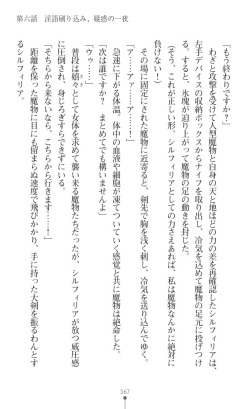 第六話　淫語刷り込み、疑惑の一夜
「もう終わりですか？」
わざと攻撃を受けて人型魔物と自身の天と地ほどの力の差を再確認したシルフィリアは、
左手デバイスの収納ボックスからナイフを取り出し、冷気を込めて魔物の足元に投げつけ
る。すると、氷塊が迫り上がって魔物の足の動きを封じた。
（そう、これが正しい形。シルフィリアとしての力があれば、私は魔物なんかに絶対に
負けない）
その場に固定された魔物に近寄ると、剣先で胸を浅く刺し、冷気を送り込んでゆく。
「ァ……アァ……ア……」
急速に下がる体温。体中の血液や細胞が凍てついていく感覚と共に魔物は絶命した。
「次は誰ですか？　まとめてでも構いませんよ」
「ウゥ……」
普段は嬉々として女体を求めて襲い来る魔物たちだったが、シルフィリアが放つ威圧感
に圧倒され、身じろぎすらできないでいる。
「こちらに来ないなら、こちらから行きます」
距離を保った魔物に目にも留まらぬ速度で飛びかかり、手に持った大剣を振るわんとす
るシルフィリア。
367